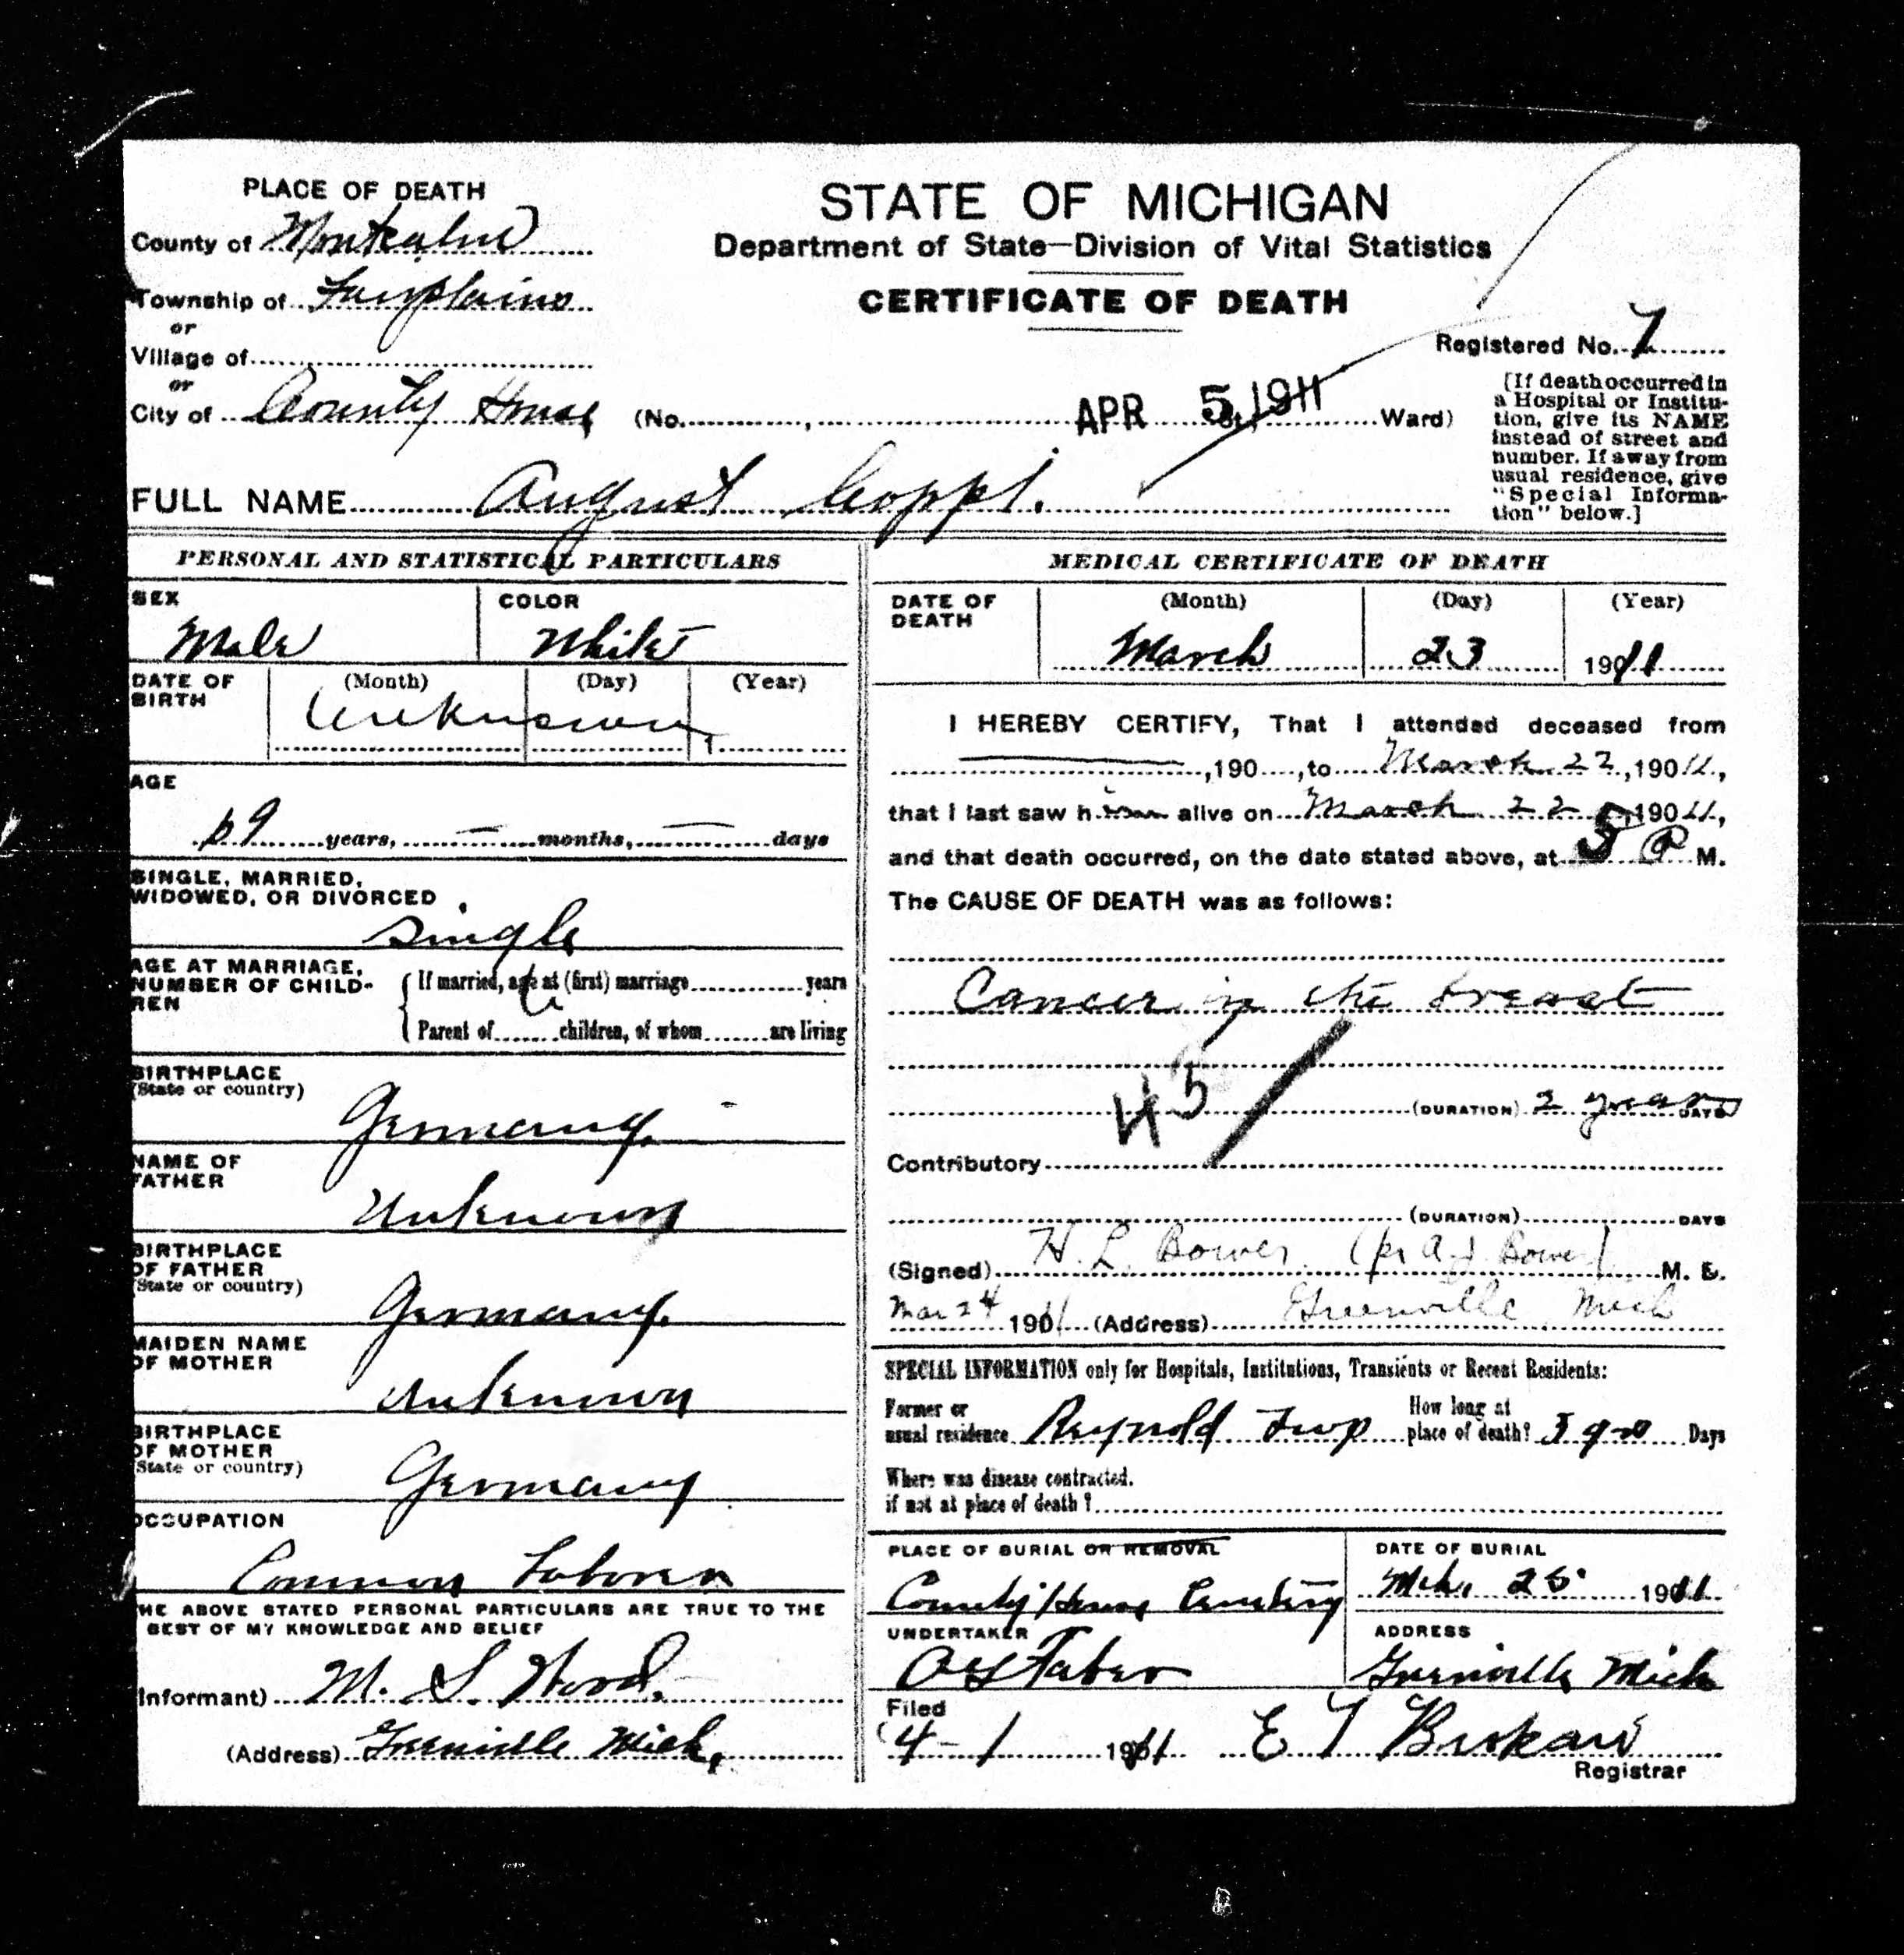 PLACE OF DEATH
County of Montcalm
Township of Fairplains
or
Village of
or
City of County House (No. , St., Ward)
APR 5 1911
STATE OF MICHIGAN
Department of State—Division of Vital Statistics
CERTIFICATE OF DEATH
Registered No. 7
[If death occurred in
a Hospital or Institu-
tion, give its NAME
instead of street and
number. If away from
usual residence, give
"Special Informa-
tion" below.]
FULL NAME August
PERSONAL AND STATISTICAL PARTICULARS
SEX
Male
COLOR
White
DATE OF
BIRTH
(Month) (Day) (Year)
Unknown
AGE
69 years, — months, — days
SINGLE, MARRIED,
WIDOWED, OR DIVORCED
Single
AGE AT MARRIAGE,
NUMBER OF CHILD-
REN
If married, age at (first) marriage years
Parent of children, of whom are living
BIRTHPLACE
(State or country)
Germany.
NAME OF
FATHER
Unknown
BIRTHPLACE
OF FATHER
(State or country)
Germany.
MAIDEN NAME
OF MOTHER
Unknown
BIRTHPLACE
OF MOTHER
(State or country)
Germany
OCCUPATION
Common Laborer
THE ABOVE STATED PERSONAL PARTICULARS ARE TRUE TO THE
BEST OF MY KNOWLEDGE AND BELIEF
Informant) M. S. Wood.
(Address) Greenville Mich,
MEDICAL CERTIFICATE OF DEATH
DATE OF
DEATH
(Month) (Day) (Year)
March 23 1911
I HEREBY CERTIFY, That I attended deceased from
——— , 190 , to March 22, 1911,
that I last saw him alive on March 22, 1911,
and that death occurred, on the date stated above, at 5 P M.
The CAUSE OF DEATH was as follows:
Cancer in the breast
43
(DURATION) 2 years DAYS
Contributory
(DURATION) DAYS
(Signed) H. L. Bower (pr A. J. Bower) M. D.
Mar 24 1911 (Address) Greenville Mich
SPECIAL INFORMATION only for Hospitals, Institutions, Transients or Recent Residents:
Former or
usual residence Reynold Twp
How long at
place of death? 3 Days
Where was disease contracted.
if not at place of death?
PLACE OF BURIAL OR REMOVAL
County House Cemetery
DATE OF BURIAL
Mch. 25 1911
UNDERTAKER
Faber
ADDRESS
Greenville Mich
Filed
4-1 1911 E T Brokaw
Registrar